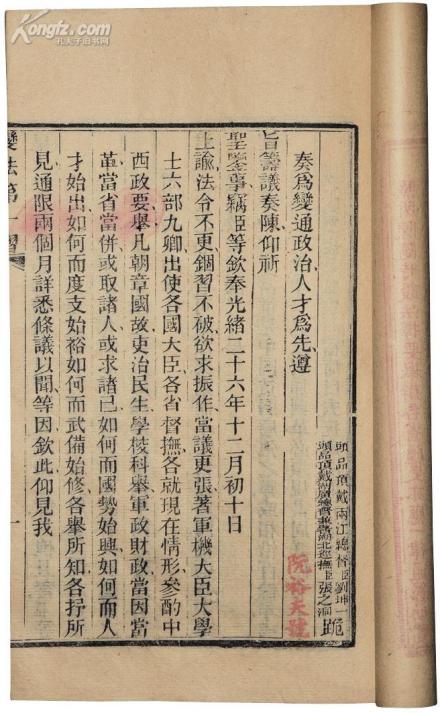 Kongfz.com
孔夫子旧书网
頭品頂戴兩江總督臣劉坤一
頭品頂戴湖廣總督兼署湖北巡撫臣張之洞跪
阮裕號
奏爲變通政治人才爲先遵
旨籌議奏陳仰祈
聖鑒事竊臣等欽奉光緒二十六年十二月初十日
上諭法令不更錮習不破欲求振作當議更張著軍機大臣大學
士六部九卿出使各國大臣各省督撫各就現在情形參酌中
西政要舉凡朝章國故吏治民生學校科舉軍政財政當因當
革當省當併或取諸人或求諸己如何而國勢始興如何而人
才始出如何而度支始裕如何而武備始修各舉所知各抒所
見通限兩個月詳悉條議以聞等因欽此仰見我
變法第一摺
一